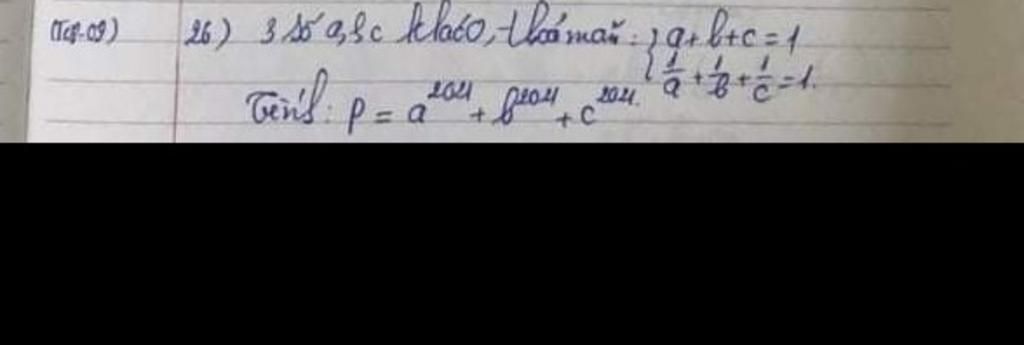 (TS9-09) 26) 3 số a, b, c khác 0, thoả mãn: { a + b + c = 1
1/a + 1/b + 1/c = 1.
Tính: P = a^2021 + b^2021 + c^2021.